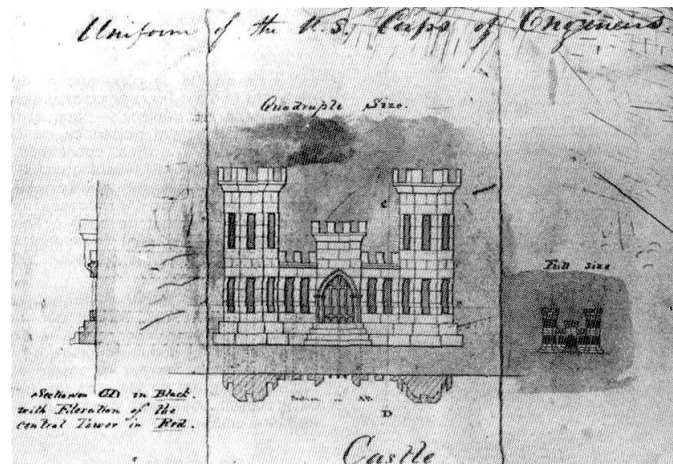 Uniform of the U.S. Corps of Engineers.
Quadruple Size.
C
Full size
Section on CD in Black.
with Elevation of the
central Tower in Red.
Section on AB
D
Castle